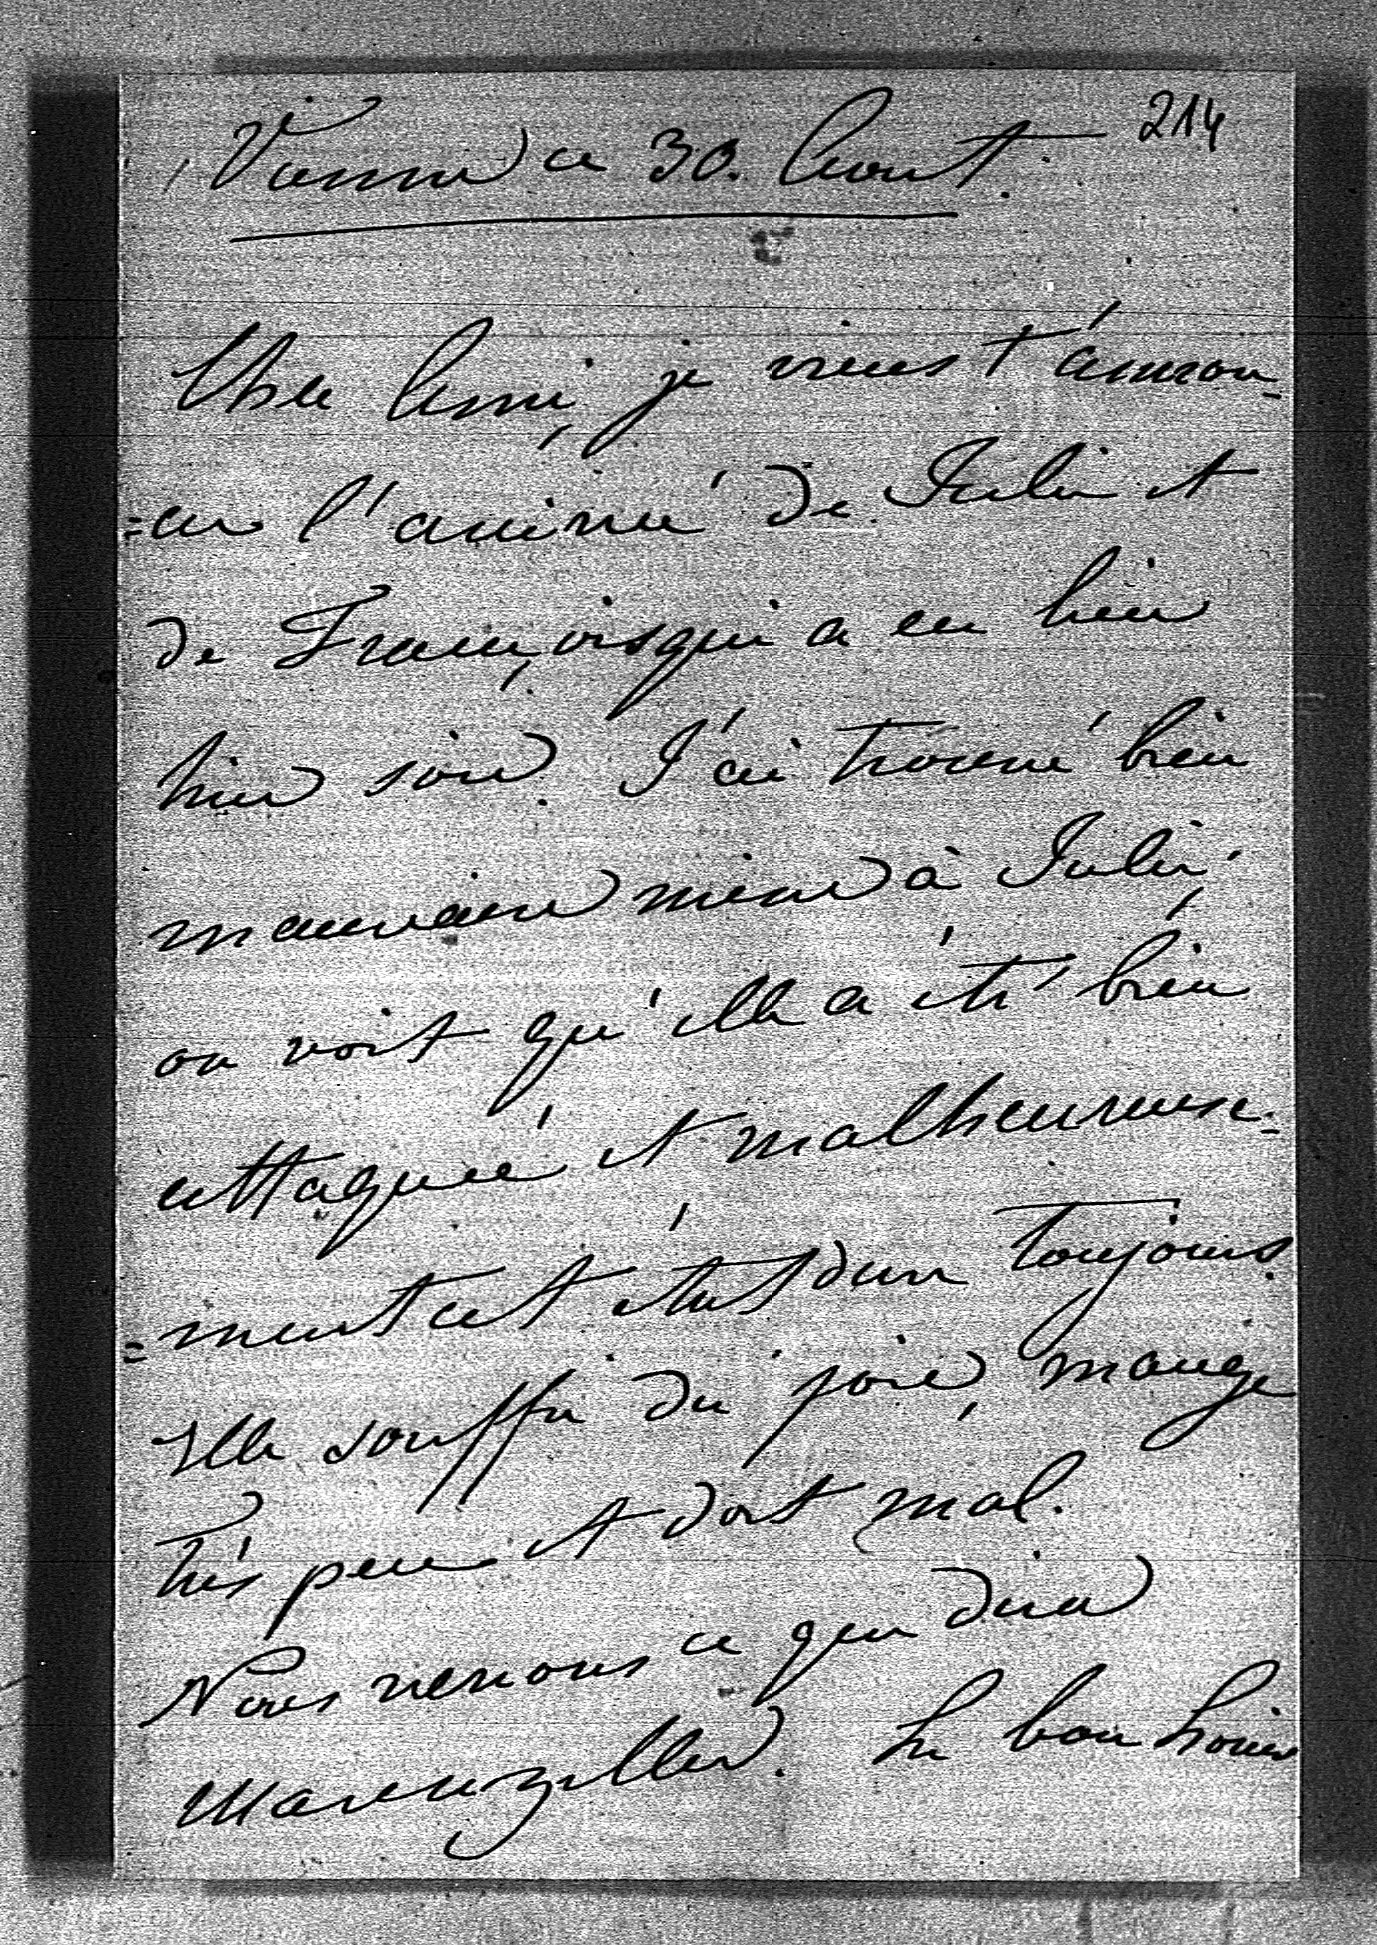 214
Vienne ce 30. Aout.
Cher Ami, je viens t'annon-
=cer l'arrivée de Julie et
de François qui a eu lieu
hier soir. J'ai trouvé bien
mauvaise mine à Julie,
on voit qu'elle a été bien
attaquée et malheureuse-
=ment cet état dure toujours.
Elle souffre du foie, mange
très peu et dort mal.
Nous verrons ce que dira
Marenzeller. Le bon Louis